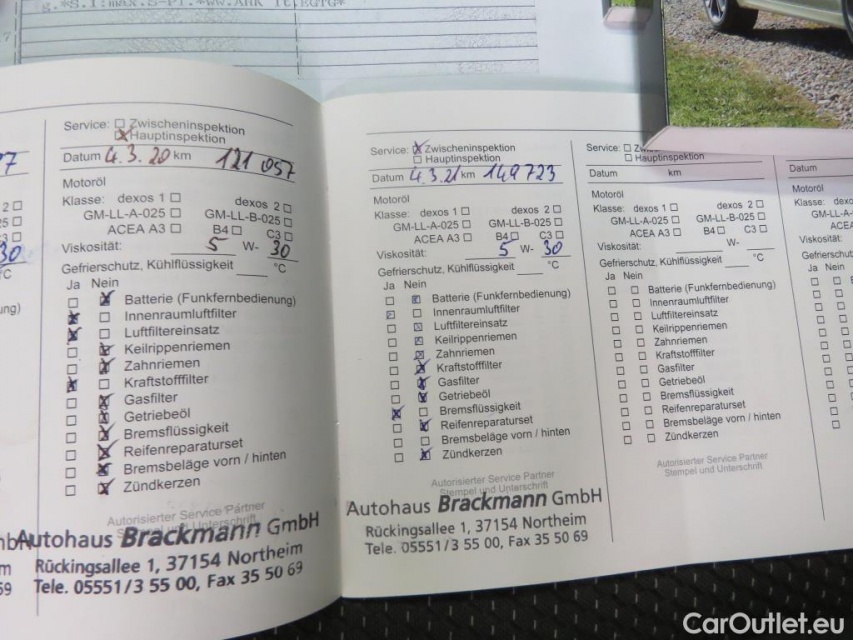 g.*S.1:max.S-Pl.*ww.AHK lt|EGTG*
7
2
5
3
30
°C
ung)
mbH
m
59
Service: Zwischeninspektion
x Hauptinspektion
Datum 4.3.20 km 121 057
Motoröl
Klasse: dexos 1 dexos 2
GM-LL-A-025 GM-LL-B-025
ACEA A3 B4 C3
Viskosität: 5 W- 30
Gefrierschutz, Kühlflüssigkeit ____ °C
Ja Nein
Batterie (Funkfernbedienung)
Innenraumluftfilter
Luftfiltereinsatz
Keilrippenriemen
Zahnriemen
Kraftstofffilter
Gasfilter
Getriebeöl
Bremsflüssigkeit
Reifenreparaturset
Bremsbeläge vorn / hinten
Zündkerzen
Autorisierter Service Partner
Stempel und Unterschrift
Autohaus Brackmann GmbH
Rückingsallee 1, 37154 Northeim
Tele. 05551/3 55 00, Fax 35 50 69
Service: x Zwischeninspektion
Hauptinspektion
Datum 4.3.21 km 149723
Motoröl
Klasse: dexos 1 dexos 2
GM-LL-A-025 GM-LL-B-025
ACEA A3 B4 C3
Viskosität: 5 W- 30
Gefrierschutz, Kühlflüssigkeit ____ °C
Ja Nein
Batterie (Funkfernbedienung)
Innenraumluftfilter
Luftfiltereinsatz
Keilrippenriemen
Zahnriemen
Kraftstofffilter
Gasfilter
Getriebeöl
Bremsflüssigkeit
Reifenreparaturset
Bremsbeläge vorn / hinten
Zündkerzen
Autorisierter Service Partner
Stempel und Unterschrift
Autohaus Brackmann GmbH
Rückingsallee 1, 37154 Northeim
Tele. 05551/3 55 00, Fax 35 50 69
Service: Zw
Hauptinspektion
Datum km
Motoröl
Klasse: dexos 1 dexos 2
GM-LL-A-025 GM-LL-B-025
ACEA A3 B4 C3
Viskosität: W-
Gefrierschutz, Kühlflüssigkeit ____ °C
Ja Nein
Batterie (Funkfernbedienung)
Innenraumluftfilter
Luftfiltereinsatz
Keilrippenriemen
Zahnriemen
Kraftstofffilter
Gasfilter
Getriebeöl
Bremsflüssigkeit
Reifenreparaturset
Bremsbeläge vorn / hinten
Zündkerzen
Autorisierter Service Partner
Stempel und Unterschrift
Datum
Motoröl
Klasse:
GM-LL-A-
ACE
Viskosität:
Gefrierschut
Ja Nein
CarOutlet.eu